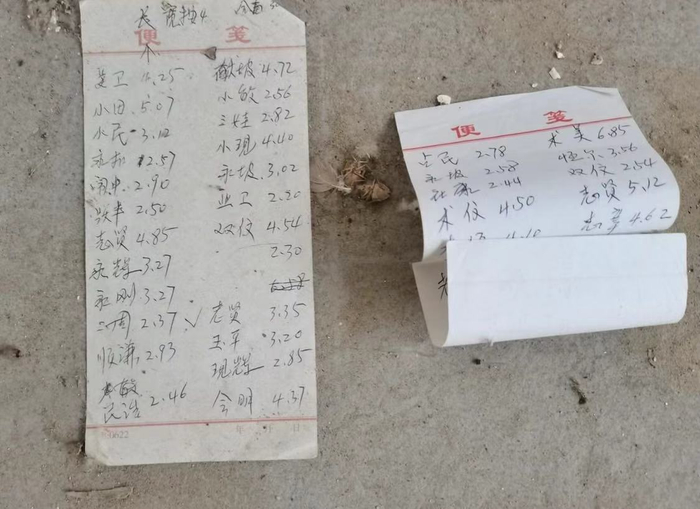 长 宽按4
便 笺
卫 4.25
小田 5.07
小民 3.12
2.57
2.90
2.50
志贤 4.85
永辉 3.27
永刚 3.27
二周 2.37 √
顺谦 2.93
民浩 2.46
献坡 4.72
小敏 2.56
三娃 2.82
小现 4.40
永坡 3.02
业卫 2.20
双仪 4.54
2.30
志贤 3.35
玉平 3.20
现辉 2.85
今明 4.37
年 月 日
便 笺
占民 2.78
永坡 2.58
2.44
术仪 4.50
术美 6.85
3.56
双仪 2.54
志贤 5.12
4.62